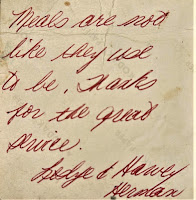 Meals are not
like they use
to be. Thanks
for the great
service.
& Harvey